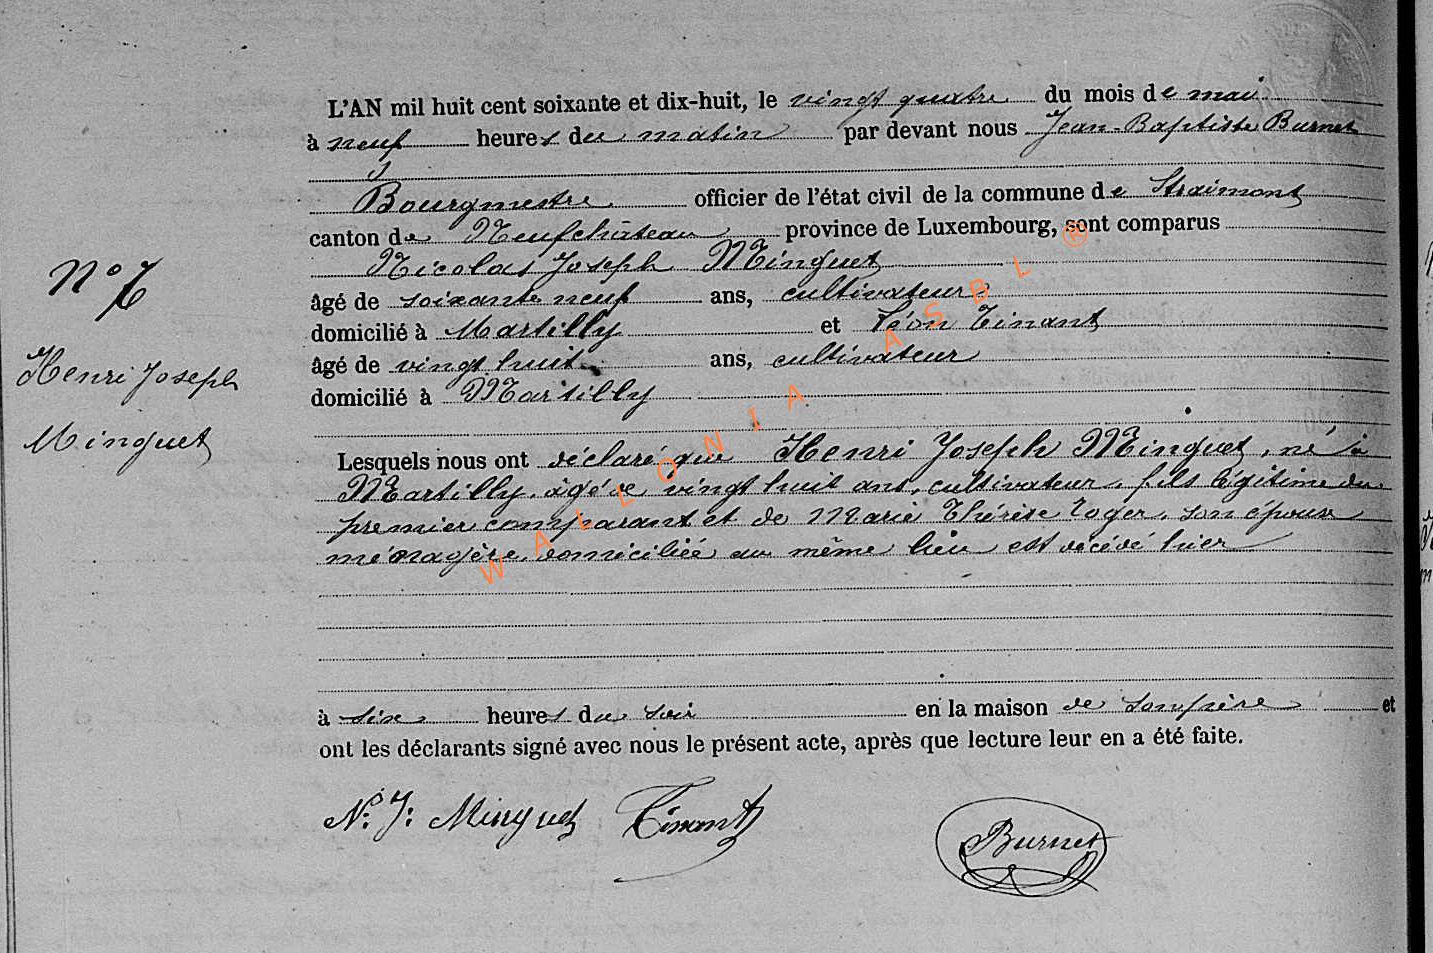 L'AN mil huit cent soixante et dix-huit, le vingt quatre du mois de mai
à neuf heures du matin par devant nous Jean-Baptiste Burnet
Bourgmestre officier de l'état civil de la commune de Straimont
canton de Neufchâteau province de Luxembourg, sont comparus
Nicolas Joseph Minguet
âgé de soixante neuf ans, cultivateur
domicilié à Martilly et Léon Tinant
âgé de vingt huit ans, cultivateur
domicilié à Martilly
N°
Henri Joseph
Minguet
Lesquels nous ont déclaré que Henri Joseph Minguet, né à
Martilly, âgé de vingt huit ans, cultivateur, fils légitime du
premier comparant et de Marie Thérèse Roger, son épouse
ménagère, domiciliée au même lieu est décédé hier
à six heures du soir en la maison de son père et
ont les déclarants signé avec nous le présent acte, après que lecture leur en a été faite.
N. J. Minguet Tinant Burnet
WALLONIA ASBL ®